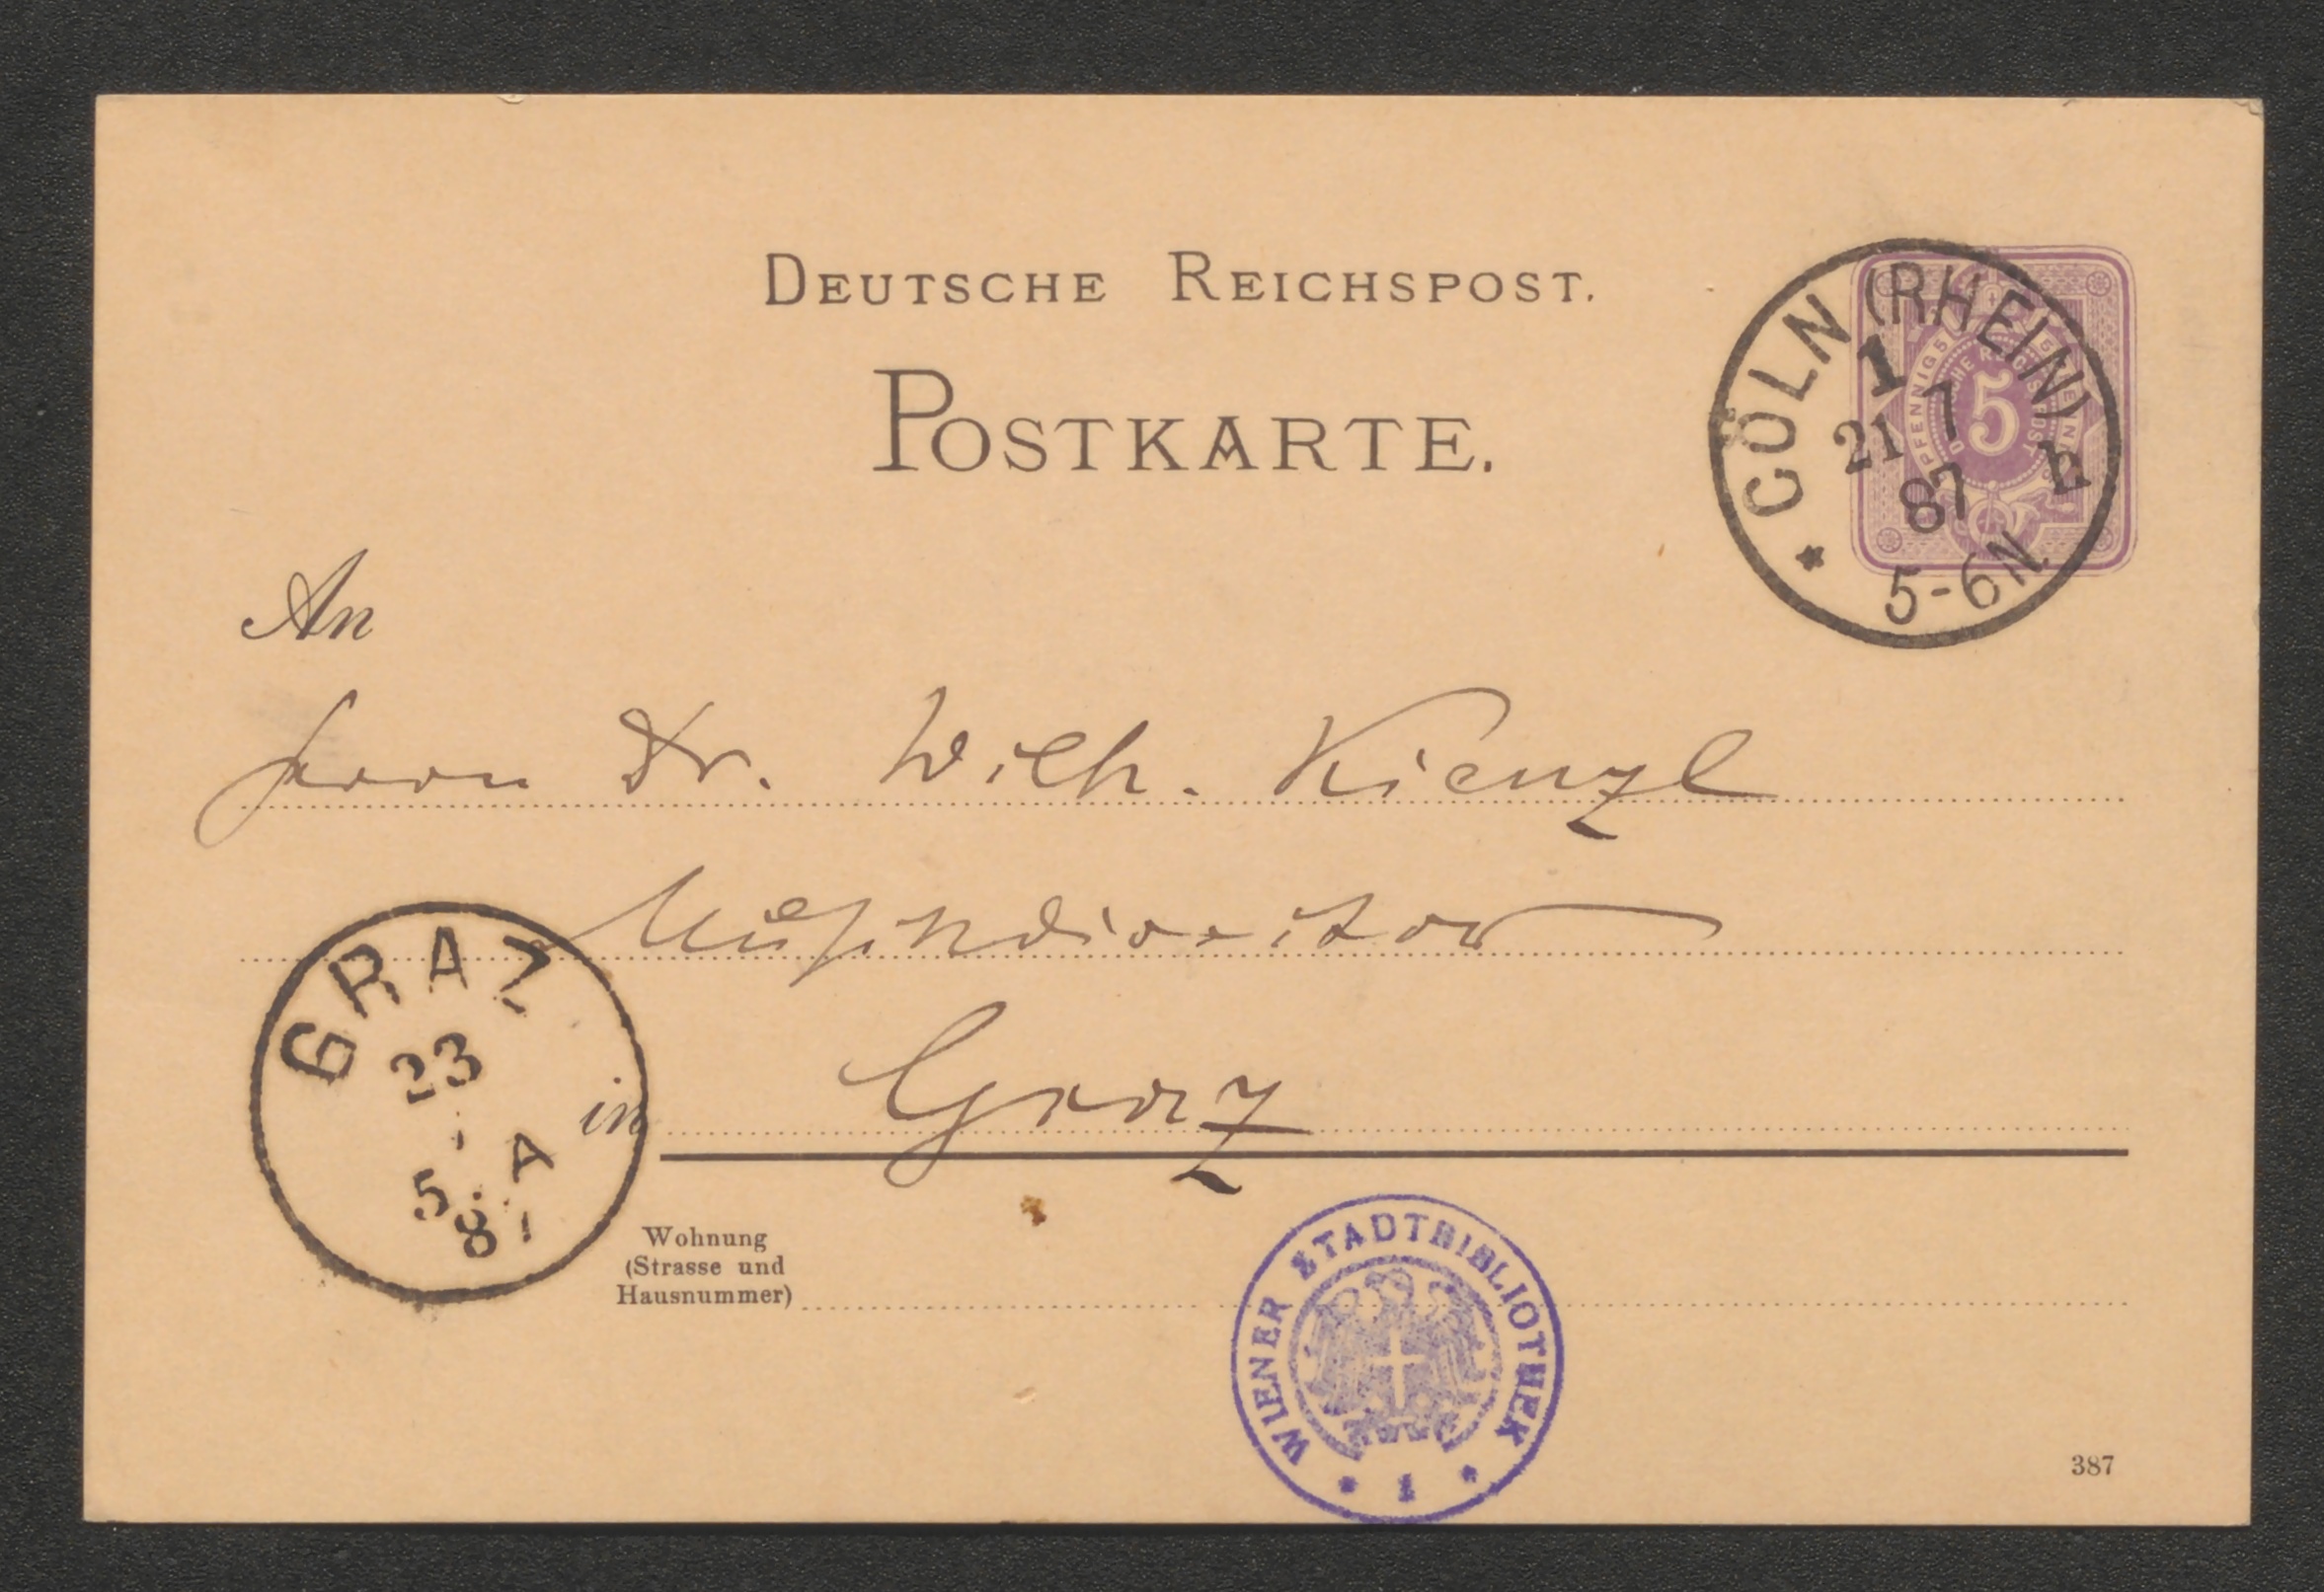 DEUTSCHE REICHSPOST.
POSTKARTE.
CÖLN (RHEIN)
1
21 7
87
5-6N.
5
An
Herrn Dr. Wilh. Kienzl
Musikdirector
GRAZ
23
5
8
A
in Graz
Wohnung
(Strasse und
Hausnummer)
WIENER STADTBIBLIOTHEK
1
387